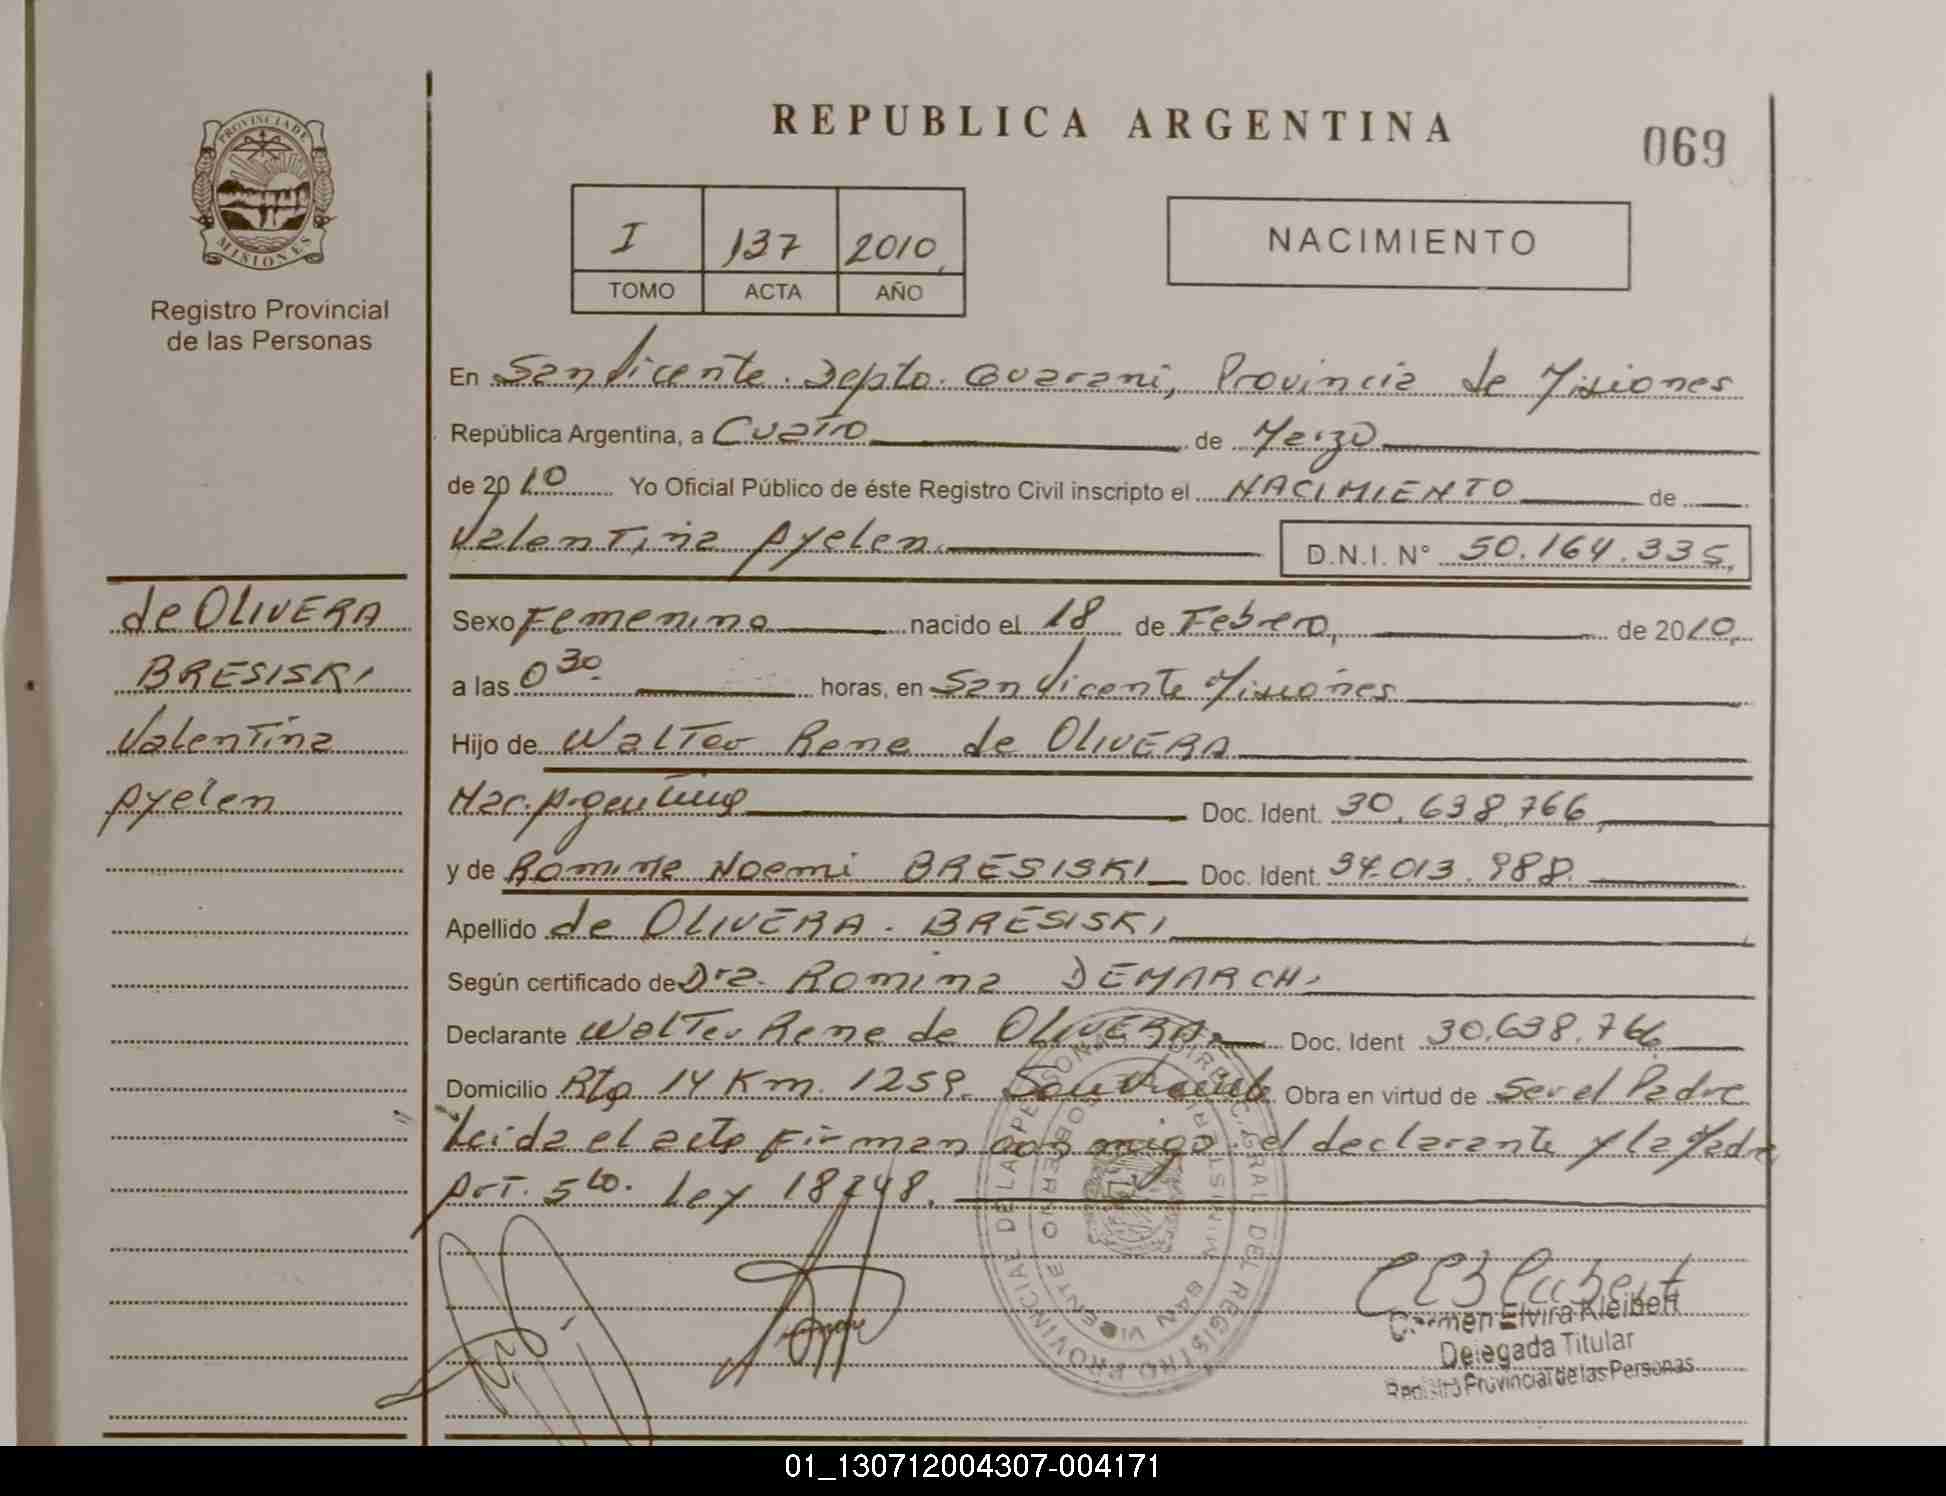 REPUBLICA ARGENTINA
069
PROVINCIA DE MISIONES
Registro Provincial
de las Personas
I 137 2010
TOMO ACTA AÑO
NACIMIENTO
En San Vicente. Depto. Guarani, Provincia de Misiones
República Argentina, a Cuatro de Marzo
de 2010 Yo Oficial Público de éste Registro Civil inscripto el NACIMIENTO de
Valentina Ayelen
D.N.I. N° 50.164.335
de OLIVERA
BRESISKI
Valentina
Ayelen
Sexo Femenino nacido el 18 de Febrero, de 2010,
a las 0 30 horas, en San Vicente Misiones
Hijo de Walter Rene de OLIVERA
Nac. Argentina Doc. Ident. 30.638.766
y de Romina Noemi BRESISKI Doc. Ident. 34.013.988.
Apellido de OLIVERA - BRESISKI
Según certificado de Dra. Romina DEMARCHI
Declarante Walter Rene de OLIVERA Doc. Ident 30.638.766
Domicilio Rta 14 Km. 1259. San Vicente Obra en virtud de Ser el Padre
Leida el acta Firman con migo el declarante y la Madre
Art. 5to. Ley 18248.
DIREC. GRAL. DEL REGISTRO PROVINCIAL DE LAS PERSONAS
SAN VICENTE
Carmen Elvira Kleibert
Delegada Titular
Registro Provincial de las Personas
01_130712004307-004171